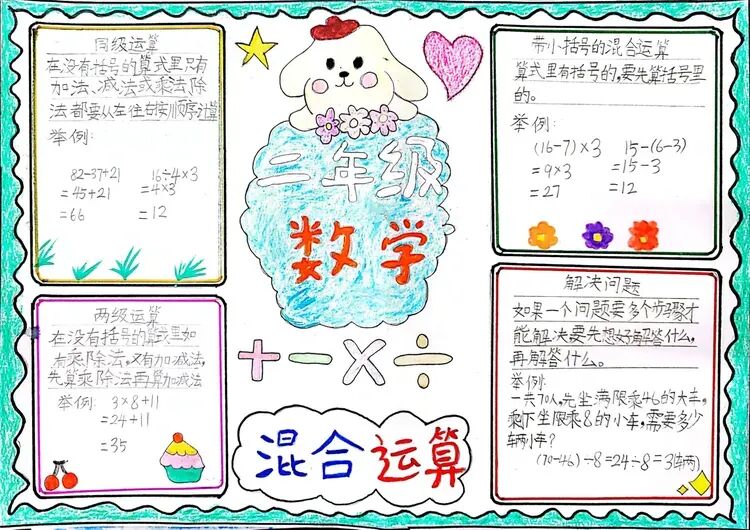 同级运算
在没有括号的算式里只有
加法、减法或乘法、除
法都要从左往右按顺序计算
举例:
82-37+21 16÷4×3
=45+21 =4×3
=66 =12
两级运算
在没有括号的算式里如
有乘除法,又有加减法,
先算乘除法再算加减法
举例: 3×8+11
=24+11
=35
二年级
数学
+-×÷
混合运算
带小括号的混合运算
算式里有括号的,要先算括号里
的。
举例:
(16-7)×3 15-(6-3)
=9×3 =15-3
=27 =12
解决问题
如果一个问题要多个步骤才
能解决要先想好解答什么,
再解答什么。
举例:
一共70人,先坐满限乘46的大车,
剩下坐限乘8的小车,需要多少
车辆小车?
(70-46)÷8=24÷8=3(车辆)